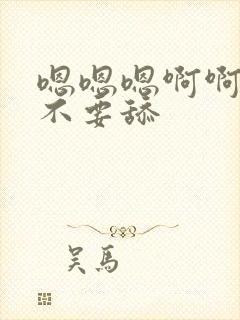 嗯嗯嗯啊啊
不要舔
吴馬